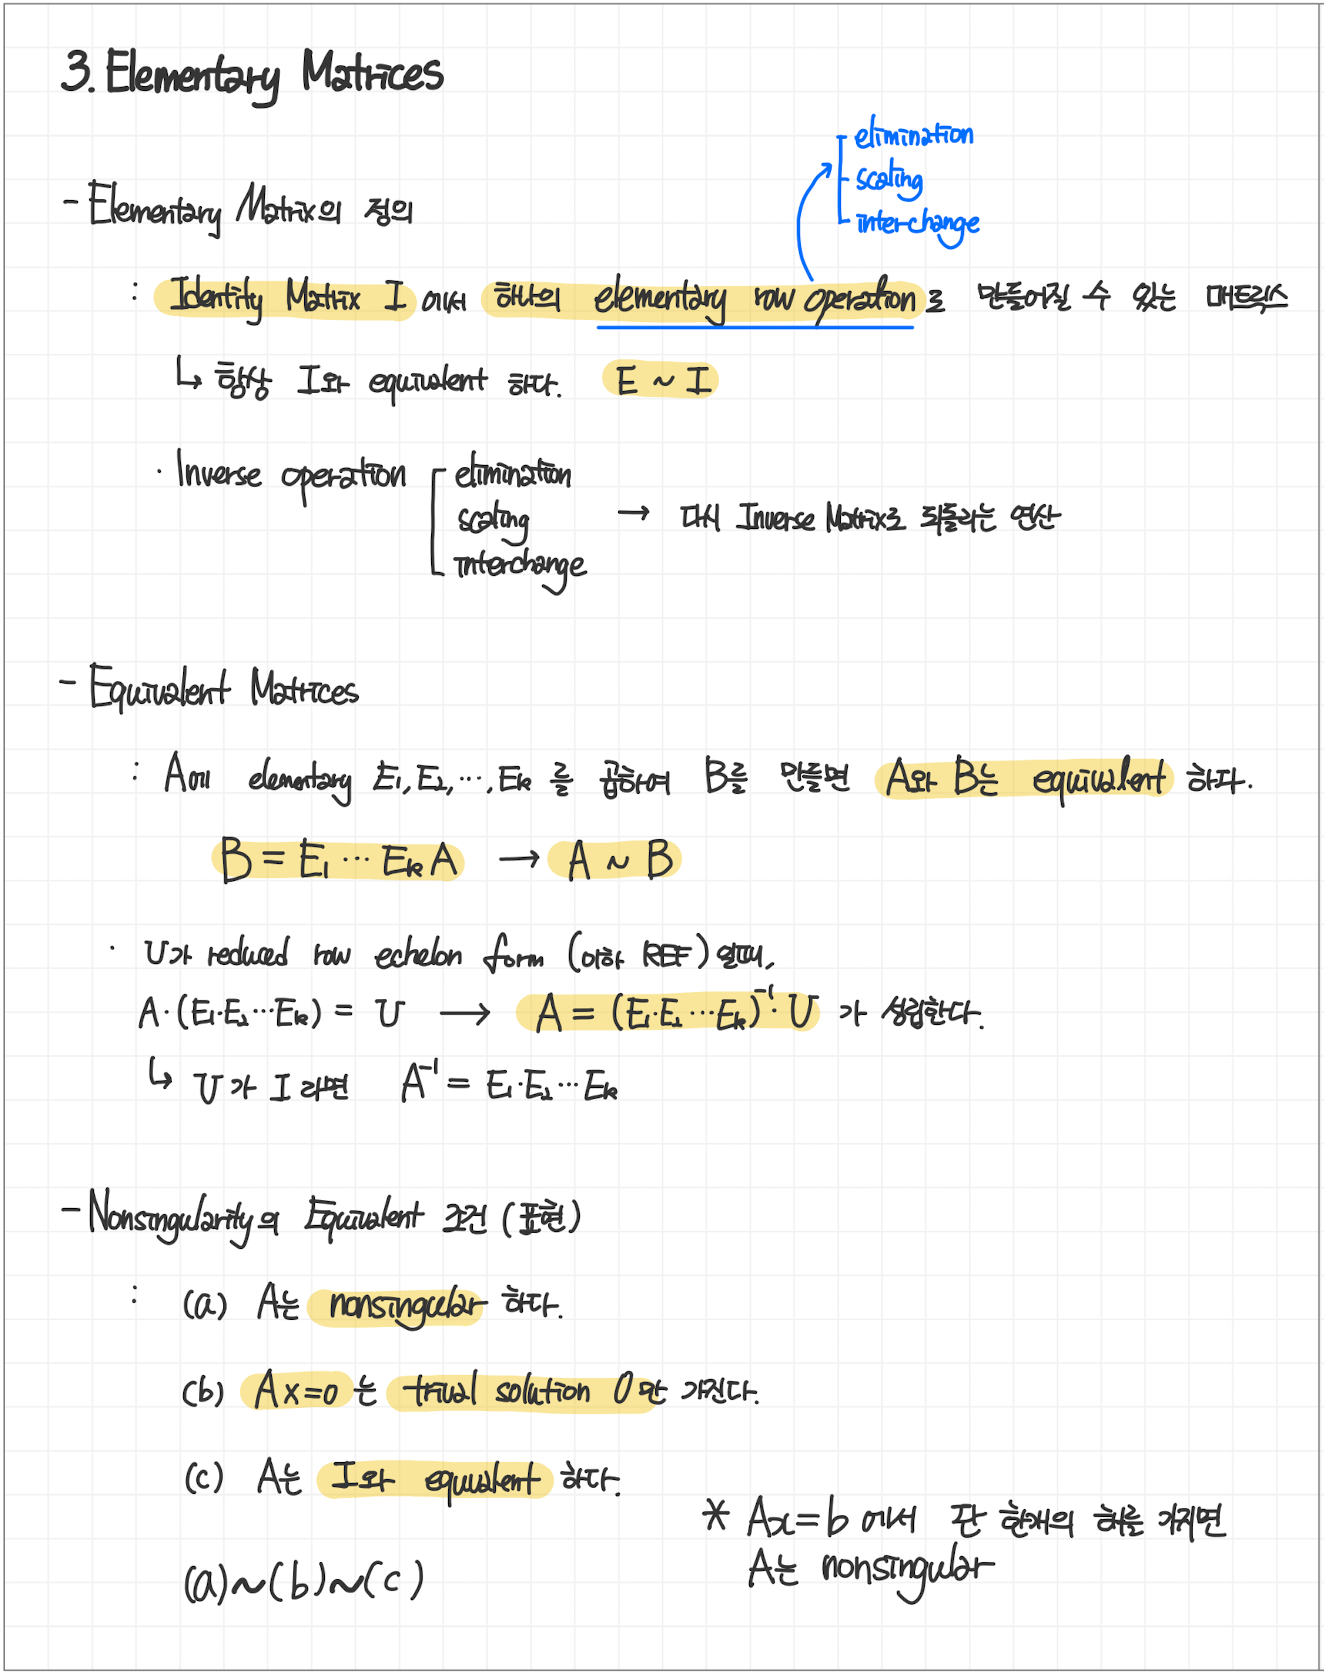 3. Elementary Matrices
elimination
scaling
interchange
- Elementary Matrix의 정의
: Identity Matrix I 에서 하나의 elementary row operation로 만들어질 수 있는 매트릭스
↳ 항상 I와 equivalent 하다. E ~ I
· Inverse operation
elimination
scaling
interchange
→ 다시 Inverse Matrix로 되돌리는 연산
- Equivalent Matrices
: A에 elementary E₁, E₂, ⋯, Eₖ 를 곱하여 B를 만들면 A와 B는 equivalent 하다.
B = E₁ ⋯ Eₖ A → A ~ B
· U가 reduced row echelon form (이하 REF) 일때,
A·(E₁·E₂⋯Eₖ) = U → A = (E₁·E₂⋯Eₖ)⁻¹·U 가 성립한다.
↳ U가 I 라면 A⁻¹ = E₁·E₂⋯Eₖ
- Nonsingularity의 Equivalent 조건 (표현)
: (a) A는 nonsingular 하다.
(b) Ax=0 는 trivial solution 0만 가진다.
(c) A는 I와 equivalent 하다.
(a)~(b)~(c)
* Ax=b 에서 단 한개의 해를 가지면
A는 nonsingular